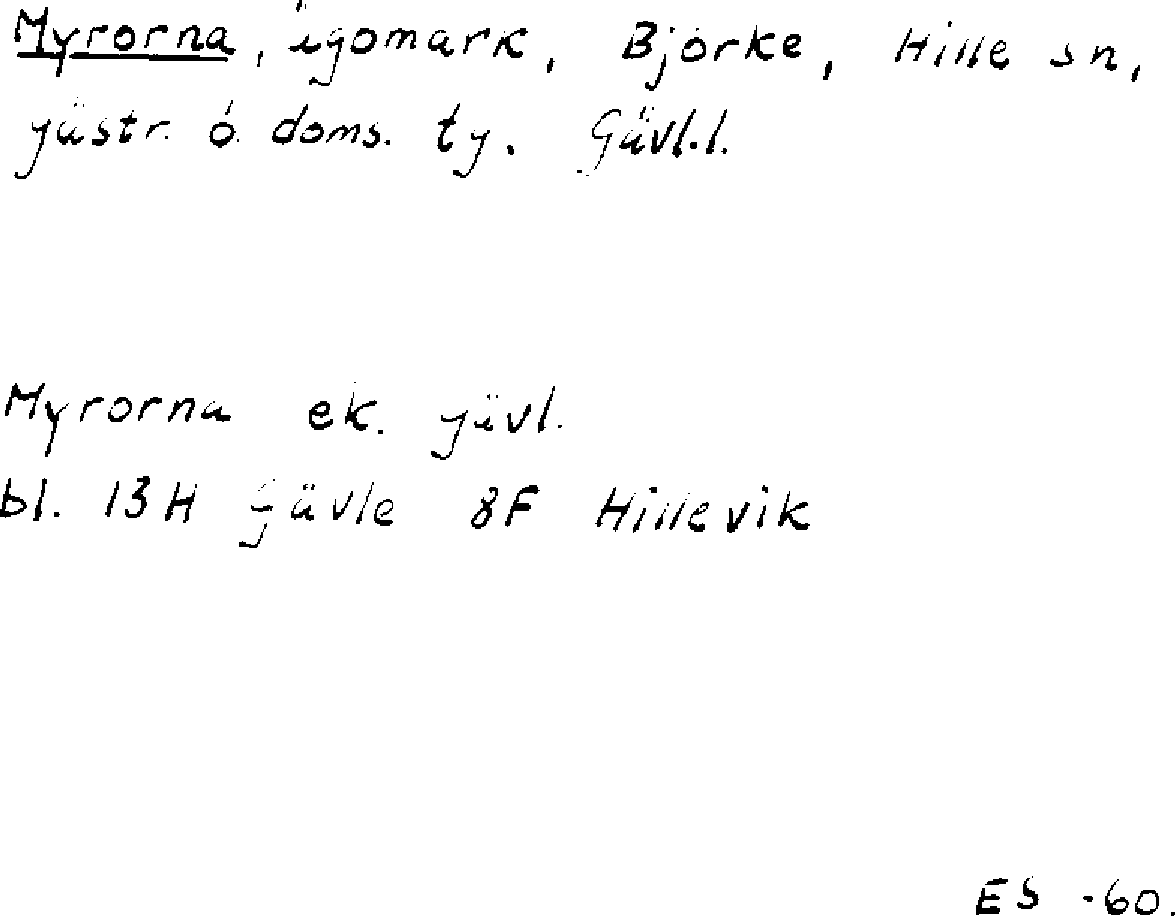 Myrorna, ägomark, Björke, Hille sn,
gästr. ö. doms. ty. Gävl.l.
Myrorna ek. gävl.
bl. 13H Gävle 8F Hillevik
ES -60.